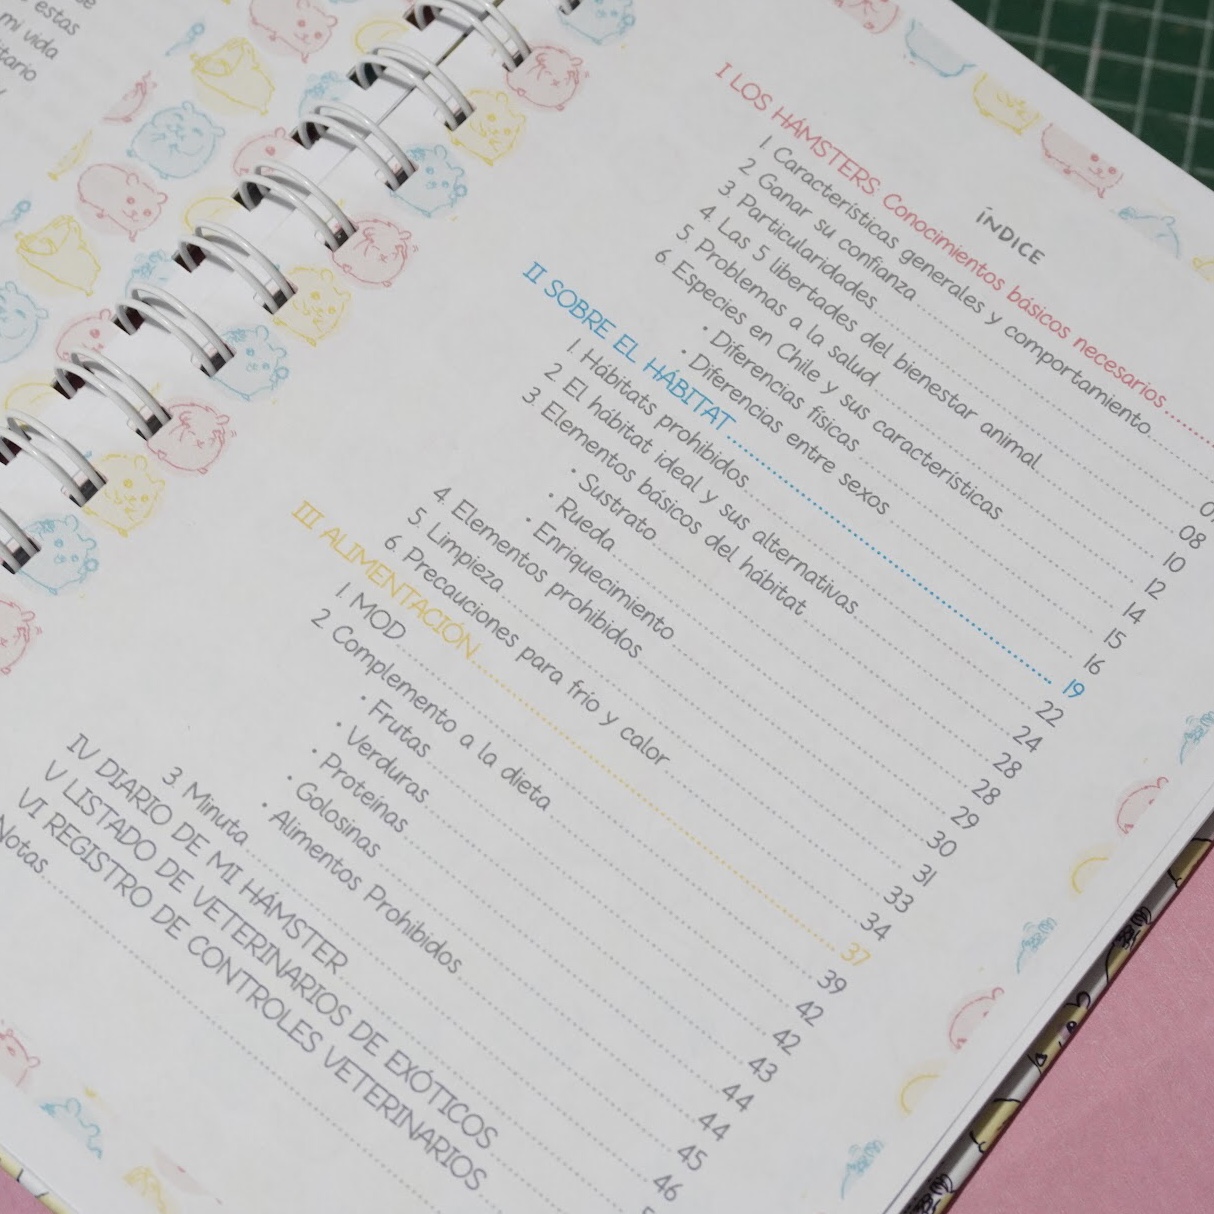 estas
mi vida
ÍNDICE
I LOS HÁMSTERS Conocimientos básicos necesarios
1. Características generales y comportamiento
2 Ganar su confianza
3 Particularidades 08
4. Las 5 libertades del bienestar animal 10
5. Problemas a la salud 12
6 Especies en Chile y sus características 14
• Diferencias físicas 15
• Diferencias entre sexos 16
II SOBRE EL HÁBITAT 19
1. Hábitats prohibidos 22
2 El hábitat ideal y sus alternativas 24
3 Elementos básicos del hábitat 28
• Sustrato 28
• Rueda 29
• Enriquecimiento 30
4. Elementos prohibidos 31
5. Limpieza 33
6. Precauciones para frío y calor 34
III ALIMENTACIÓN 37
1. MOD 39
2 Complemento a la dieta 42
• Frutas 42
• Verduras 43
• Proteínas 44
• Golosinas 44
• Alimentos Prohibidos 45
3 Minuta 46
IV DIARIO DE MI HÁMSTER
V LISTADO DE VETERINARIOS DE EXÓTICOS
VI REGISTRO DE CONTROLES VETERINARIOS
Notas